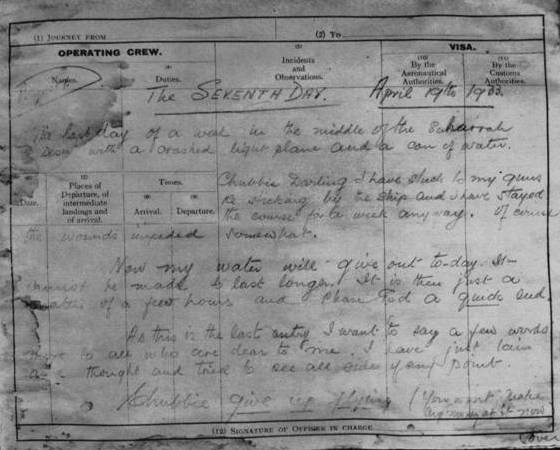 (1) JOURNEY FROM (2) To
OPERATING CREW. VISA.
Names. Duties. Incidents and Observations. By the Aeronautical Authorities. By the Customs Authorities.
The SEVENTH DAY. April 19th 1933.
The last day of a week in the middle of the Saharrah
Desert with a crashed light plane and a can of water.
Date. Places of Departure, of intermediate landings and of arrival. Times. Arrival. Departure.
Chubbie Darling I have stuck to my guns
re sticking by the ship and I have stayed
the course for a week anyway. Of course
the wounds impeded somewhat.
Now my water will give out to-day. It
cannot be made to last longer. It is then just a
matter of a few hours and please God a quick end.
As this is the last entry I want to say a few words
more to all who are dear to me. I have just lain
and thought and tried to see all sides of any point.
Chubbie give up flying (You wont make
any money at it now
(12) SIGNATURE OF OFFICER IN CHARGE
(over